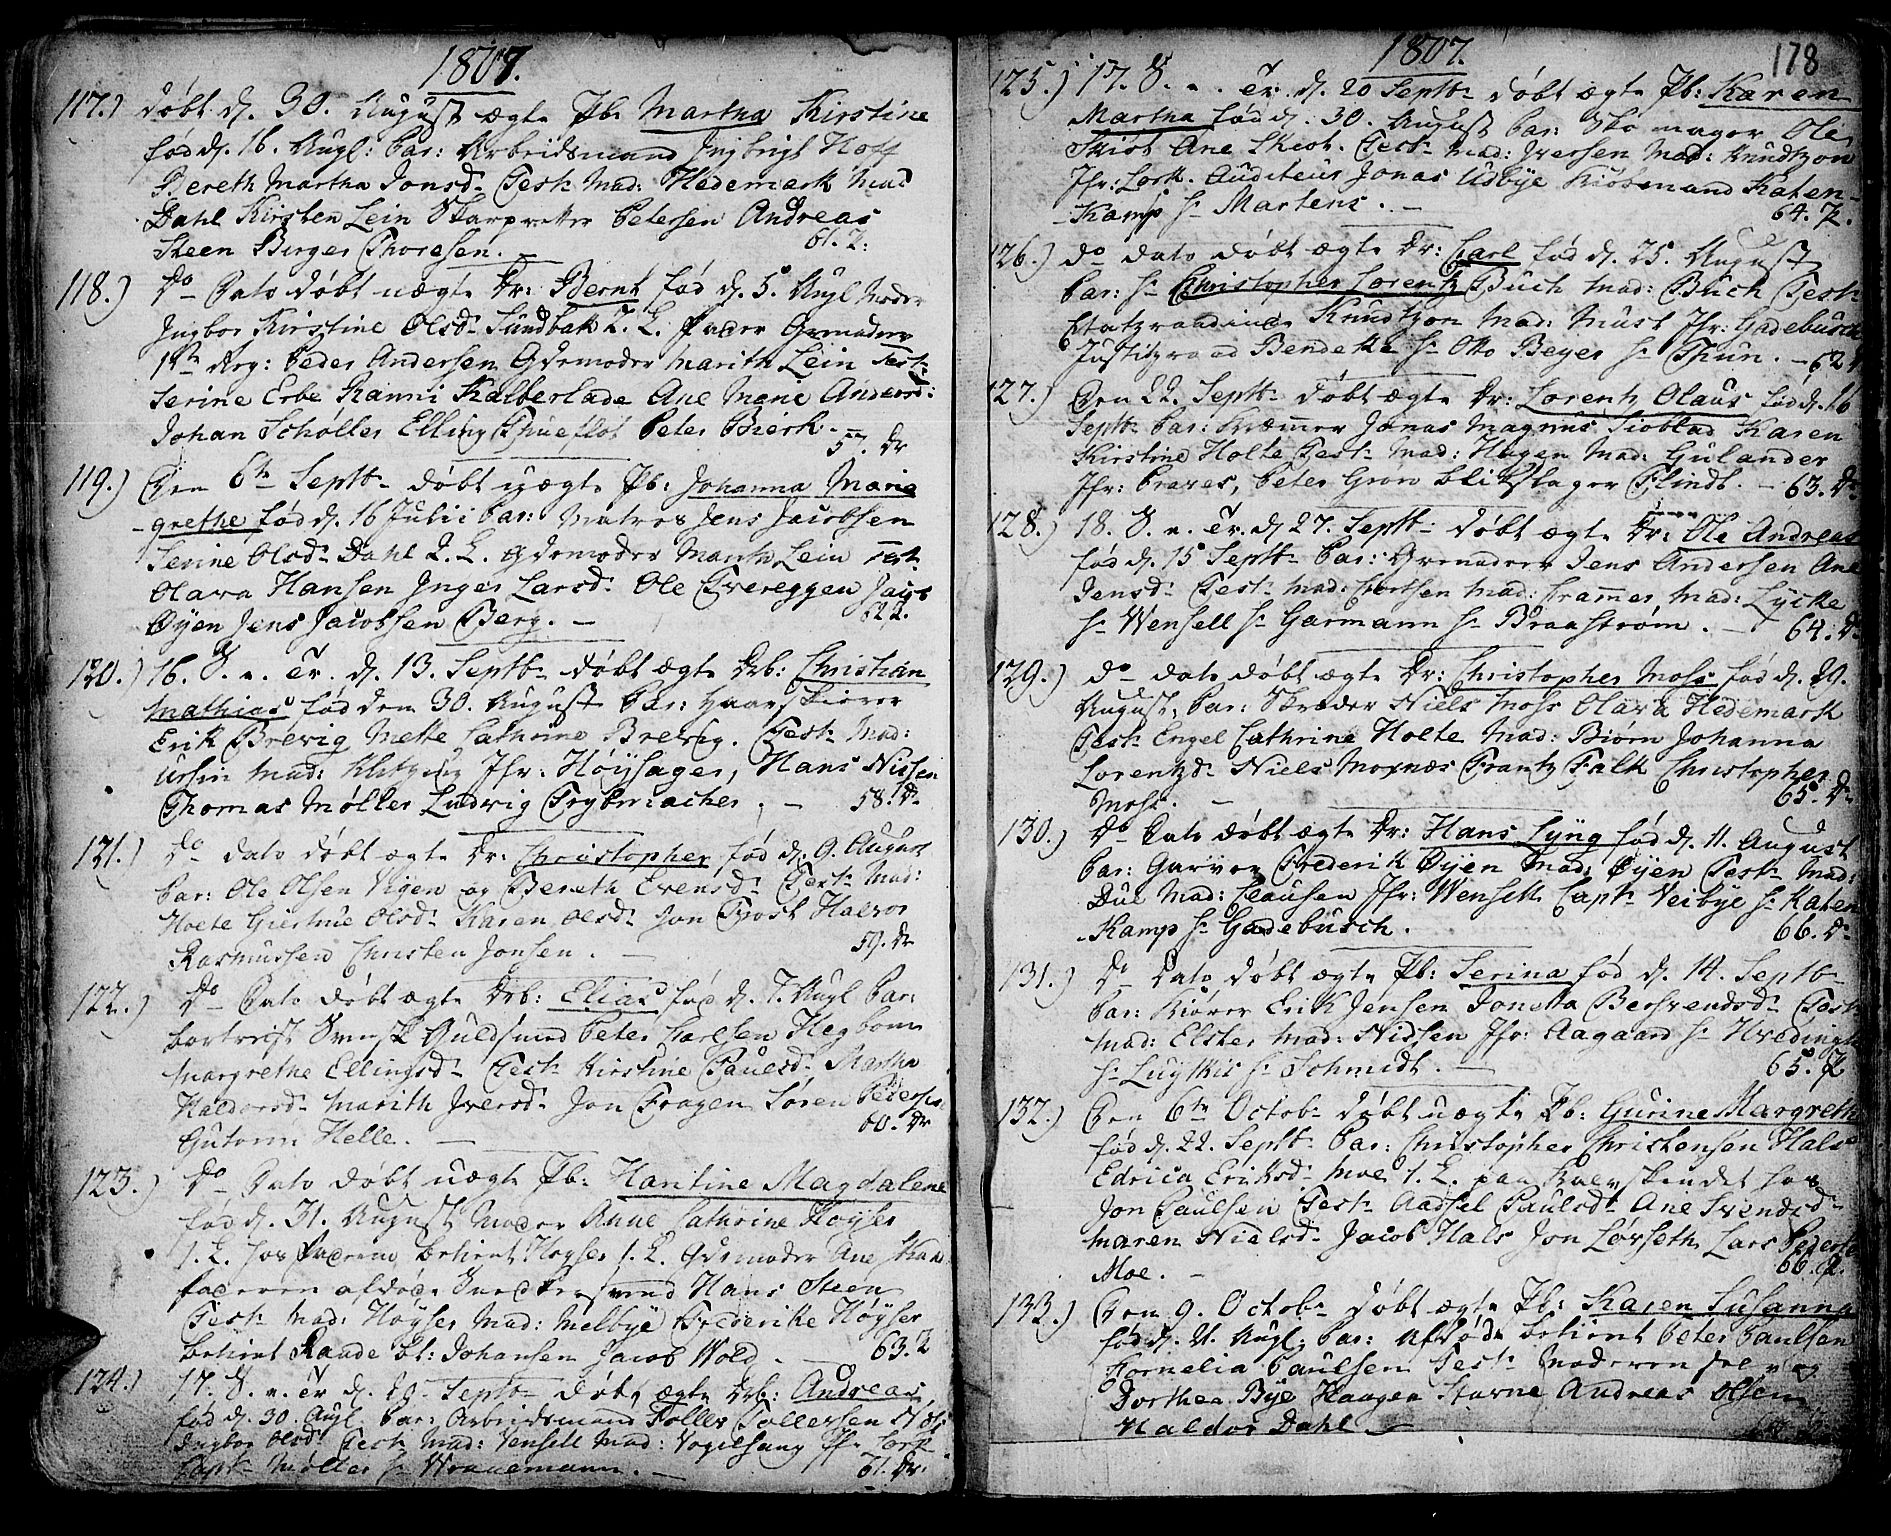 1807.
117.) døbt d. 30. August ægte Pb: Martha Kirstine
fød d. 16. Augl: Par: Arbeidsmand Ingbrigt Hoff
Bereth Martha Jonsd. Test. Mad: Hedemark Mad
Dahl Kirsten Lein Skarpretter Petersen Andreas
Steen Birger Thoresen. — 61. P.
118.) Do Dato døbt uægte Dr: Bernt fød d. 5. Augl Moder
Ingbor Kirstine Olsd. Sundbak 2. L. Fader Grenader
Peder Andersen Gdemoder Marith Lein Test.
Serine Erbe Kanni Kalberlade Ane Marie Andersd:
Johan Schøller Elling Peter Bierk. — 57. Dr
119.) Den 6te Septb. døbt uægte Pb: Johanna Marie
grethe fød d. 16 Julii Par: Matros Jens Jacobsen
Serine Olsd. Dahl 2. L. Gdemoder Marith Lein Test.
Olava Hansen Inger Larsd. Ole Tvereggen
Øyen Jens Jacobsen Berg. — 62.
120.) 16. S. n. Tr. d. 13. Septb. døbt ægte Drb: Christian
Mathias fød den 30. August Par: Haarskierer
Erik Brevig Mette Cathrine Brevig. Test. Mad:
Ursin Mad: Klitzing Jfr: Høysager, Hans Nissen
Thomas Møller Ludvig Trybmacher. — 58. Dr
121.) Do dato døbt ægte Dr: Christopher fød d. 9. August
Par: Ole Olsen Vigen og Bereth Evensd. Test. Mad:
Holte Olsd. Karen Olsd. Jon Trøst Halvor
Rasmussen Christen Jonsen. — 59. Dr
122.) Do Dato døbt ægte Drb: Elias fød d. 7. Augl Par:
bortreist Svensk Guldsmed Peter Carlsen Hegbom
Margrethe Ellingsd. Test. Kirstine Paulsd. Martha
Haldorsd. Marith Iversd. Jon Fragen Søren Pedersen
Gutorm Helle. — 60. Dr
123.) Do Dato døbt uægte Pb: Hantine Magdalene
fød d. 31. August Moder Anne Cathrine Høyser
1. L. hos Faderen betient Høyser 1. L. Gdemoder Ane
faderen afdøde Hans Steen
Test. Mad: Høyser Mad: Melbye Frederike Høyser
betient Raude bt: Johansen Jacob Wold. — 63. P
124.) 17. S. n. Tr. d. 20. Septb. døbt ægte Drb: Andreas
fød d. 30. Augl. Par: Arbeidsmand Toller Tollersen
Ingbor Olsd. Test. Mad: Vensell Mad: Vogelsang Jfr Lork
Capt. Møller Hr. — 61. Dr.
1807. 178
125.) 17. S. n. Tr. d. 20 Septb. døbt ægte Pb: Karen
Martha fød d. 30. August Par: Skomager Ole
Skiøt Ane Skiøt. Test. Mad: Iversen Mad: Knudtzon
Jfr: Lork. Auditeur Jonas Udbye Kiøbmand Katen-
-kamp Hr. Martens. — 64. P.
126.) do dato døbt ægte Dr: Carl fød d. 25. August
Par: Hr. Christopher Lorentz Buch Mad: Buch Test.
Etatzraadinde Knudtzon Mad: Must Jfr: Gadebusch
Justitzraad Bendeke Hr. Otto Beyer Hr. Thun. — 62
127.) Den 22. Septb. døbt ægte Dr: Lorentz Olaus fød d. 16
Septb. Par: Kræmmer Jonas Magnus Sioblad Karen
Kirstine Holte Test. Mad: Hagen Mad: Gulander
Jfr: Praxes, Peter Grøn Blikslager Flindt. — 63. Dr
128.) 18. S. n. Tr. d 27. Septb. døbt ægte Dr: Ole Andreas
fød d. 15 Septb. Par: Grenader Jens Andersen Ane
Jensd. Test. Mad: Mad: Crammer Mad: Lycke
Hr. Wensell Hr. Garmann Hr. Braastrøm. — 64. Dr
129.) do dato døbt ægte Dr: Christopher Moss fød d. 29.
August, Par: Skreder Niels Moss Olava Hedemark
Test. Engel Cathrine Holte Mad: Biørn Johanna
Lorentzd. Niels Moxnæs Frantz Falk Christopher
Moss. — 65. Dr
130.) Do Dato døbt ægte Dr: Hans Lyng fød d. 11. August
Par: Garver Frederik Øyen Mad: Øyen Test. Mad:
Due Mad: Clausen Jfr: Wensell Capt. Veibye Hr. Katen
-kamp Hr. Gadebusch. 66. Dr
131.) Do Dato døbt ægte Pb: Serina fød d. 14. Septb.
Par: Kiører Erik Jensen Jonetta Berhrendsd. Test.
Mad: Elster Mad: Nissen Jfr: Aagaard Hr. Hveding
Hr. Luytkis Hr. Schmidt. — 65. P
132.) Den 6te Octob. døbt uægte Pb: Gurine Margreth
fød d. 22. Septb. Par: Christopher Christensen Hals
Edrica Eriksd. Moe 1. L. paa Kalvskindet hos
Jon Paulsen Test. Aadsel Paulsd. Ane Svendsd.
Maren Nielsd. Jacob Hals Jon Løvseth Lars Pedersen
Moe. — 66. P.
133.) Den 9. Octob. døbt ægte Pb: Karen Susanna
fød d. 21. Augl. Par: Afdøde betient Peter Paulsen
Kornelia Paulsen Test. Moderen selv og
Dorthea Bye Haagen Stavne Andreas Olsen
Haldor Dahl